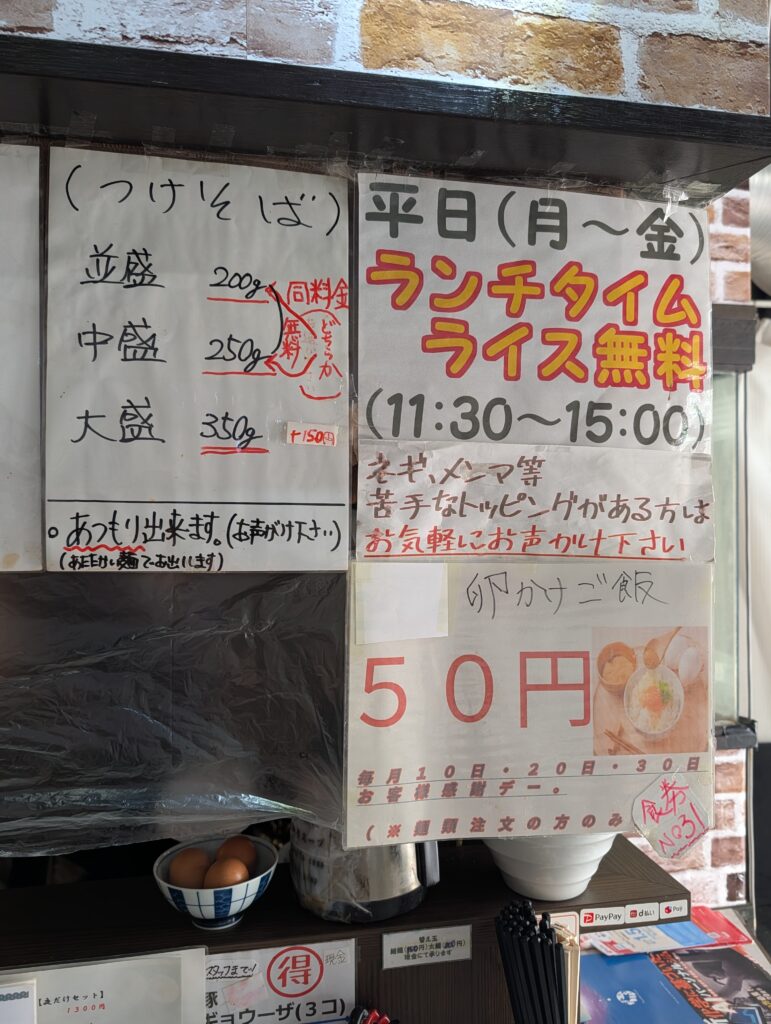 (つけそば)
並盛 200g
中盛 250g
同料金
どちらか
無料
大盛 350g +150円
。あつもり出来ます。(お声がけ下さい)
(あたたかい麺でお出しします)
平日(月～金)
ランチタイム
ライス無料
(11:30～15:00)
ネギ、メンマ等
苦手なトッピングがある方は
お気軽にお声かけ下さい
卵かけご飯
50円
毎月10日・20日・30日
お客様感謝デー。
(※麺類注文の方のみ
食券
No31
スタッフまで!
得
現金
豚
ギョウーザ(3コ)
替え玉
現金にて承ります
PayPay
d払い
R Pay
1300円